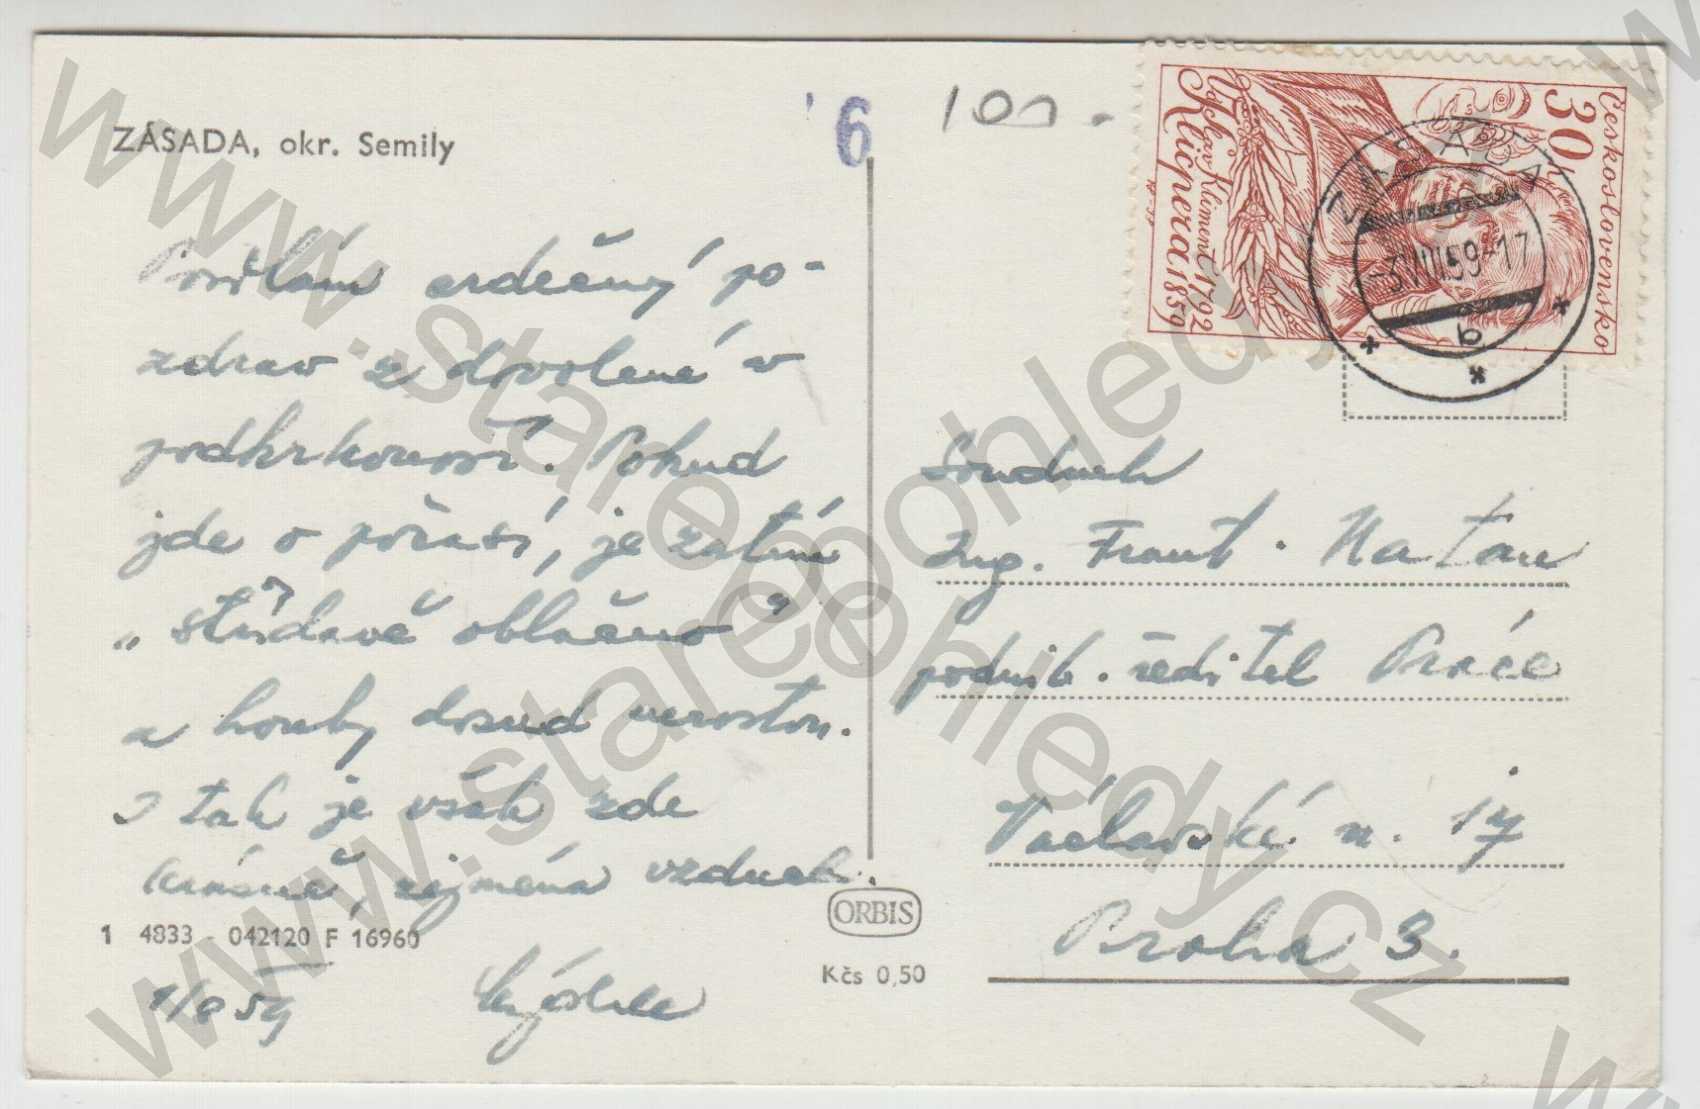 ZÁSADA, okr. Semily
6
100.-
Posílám srdečný po-
zdrav z dovolené v
podkrkonoší. Pokud
jde o počasí, je zatím
„střídavě oblačno"
a houby dosud nerostou.
I tak je však zde
krásně, zejména vzduch.
1 4833 - 042120 F 16960
1/8 59
ORBIS
Kčs 0,50
Československo
30h
Václav Kliment
Klicpera
1792 1859
ZÁSADA
-3.VIII.59-17
b
Soudruh
Ing. Frant. Natan
podnik. ředitel Práce
Václavské n. 17
Praha 3.
www.stare-pohledy.cz
www.stare-pohledy.cz